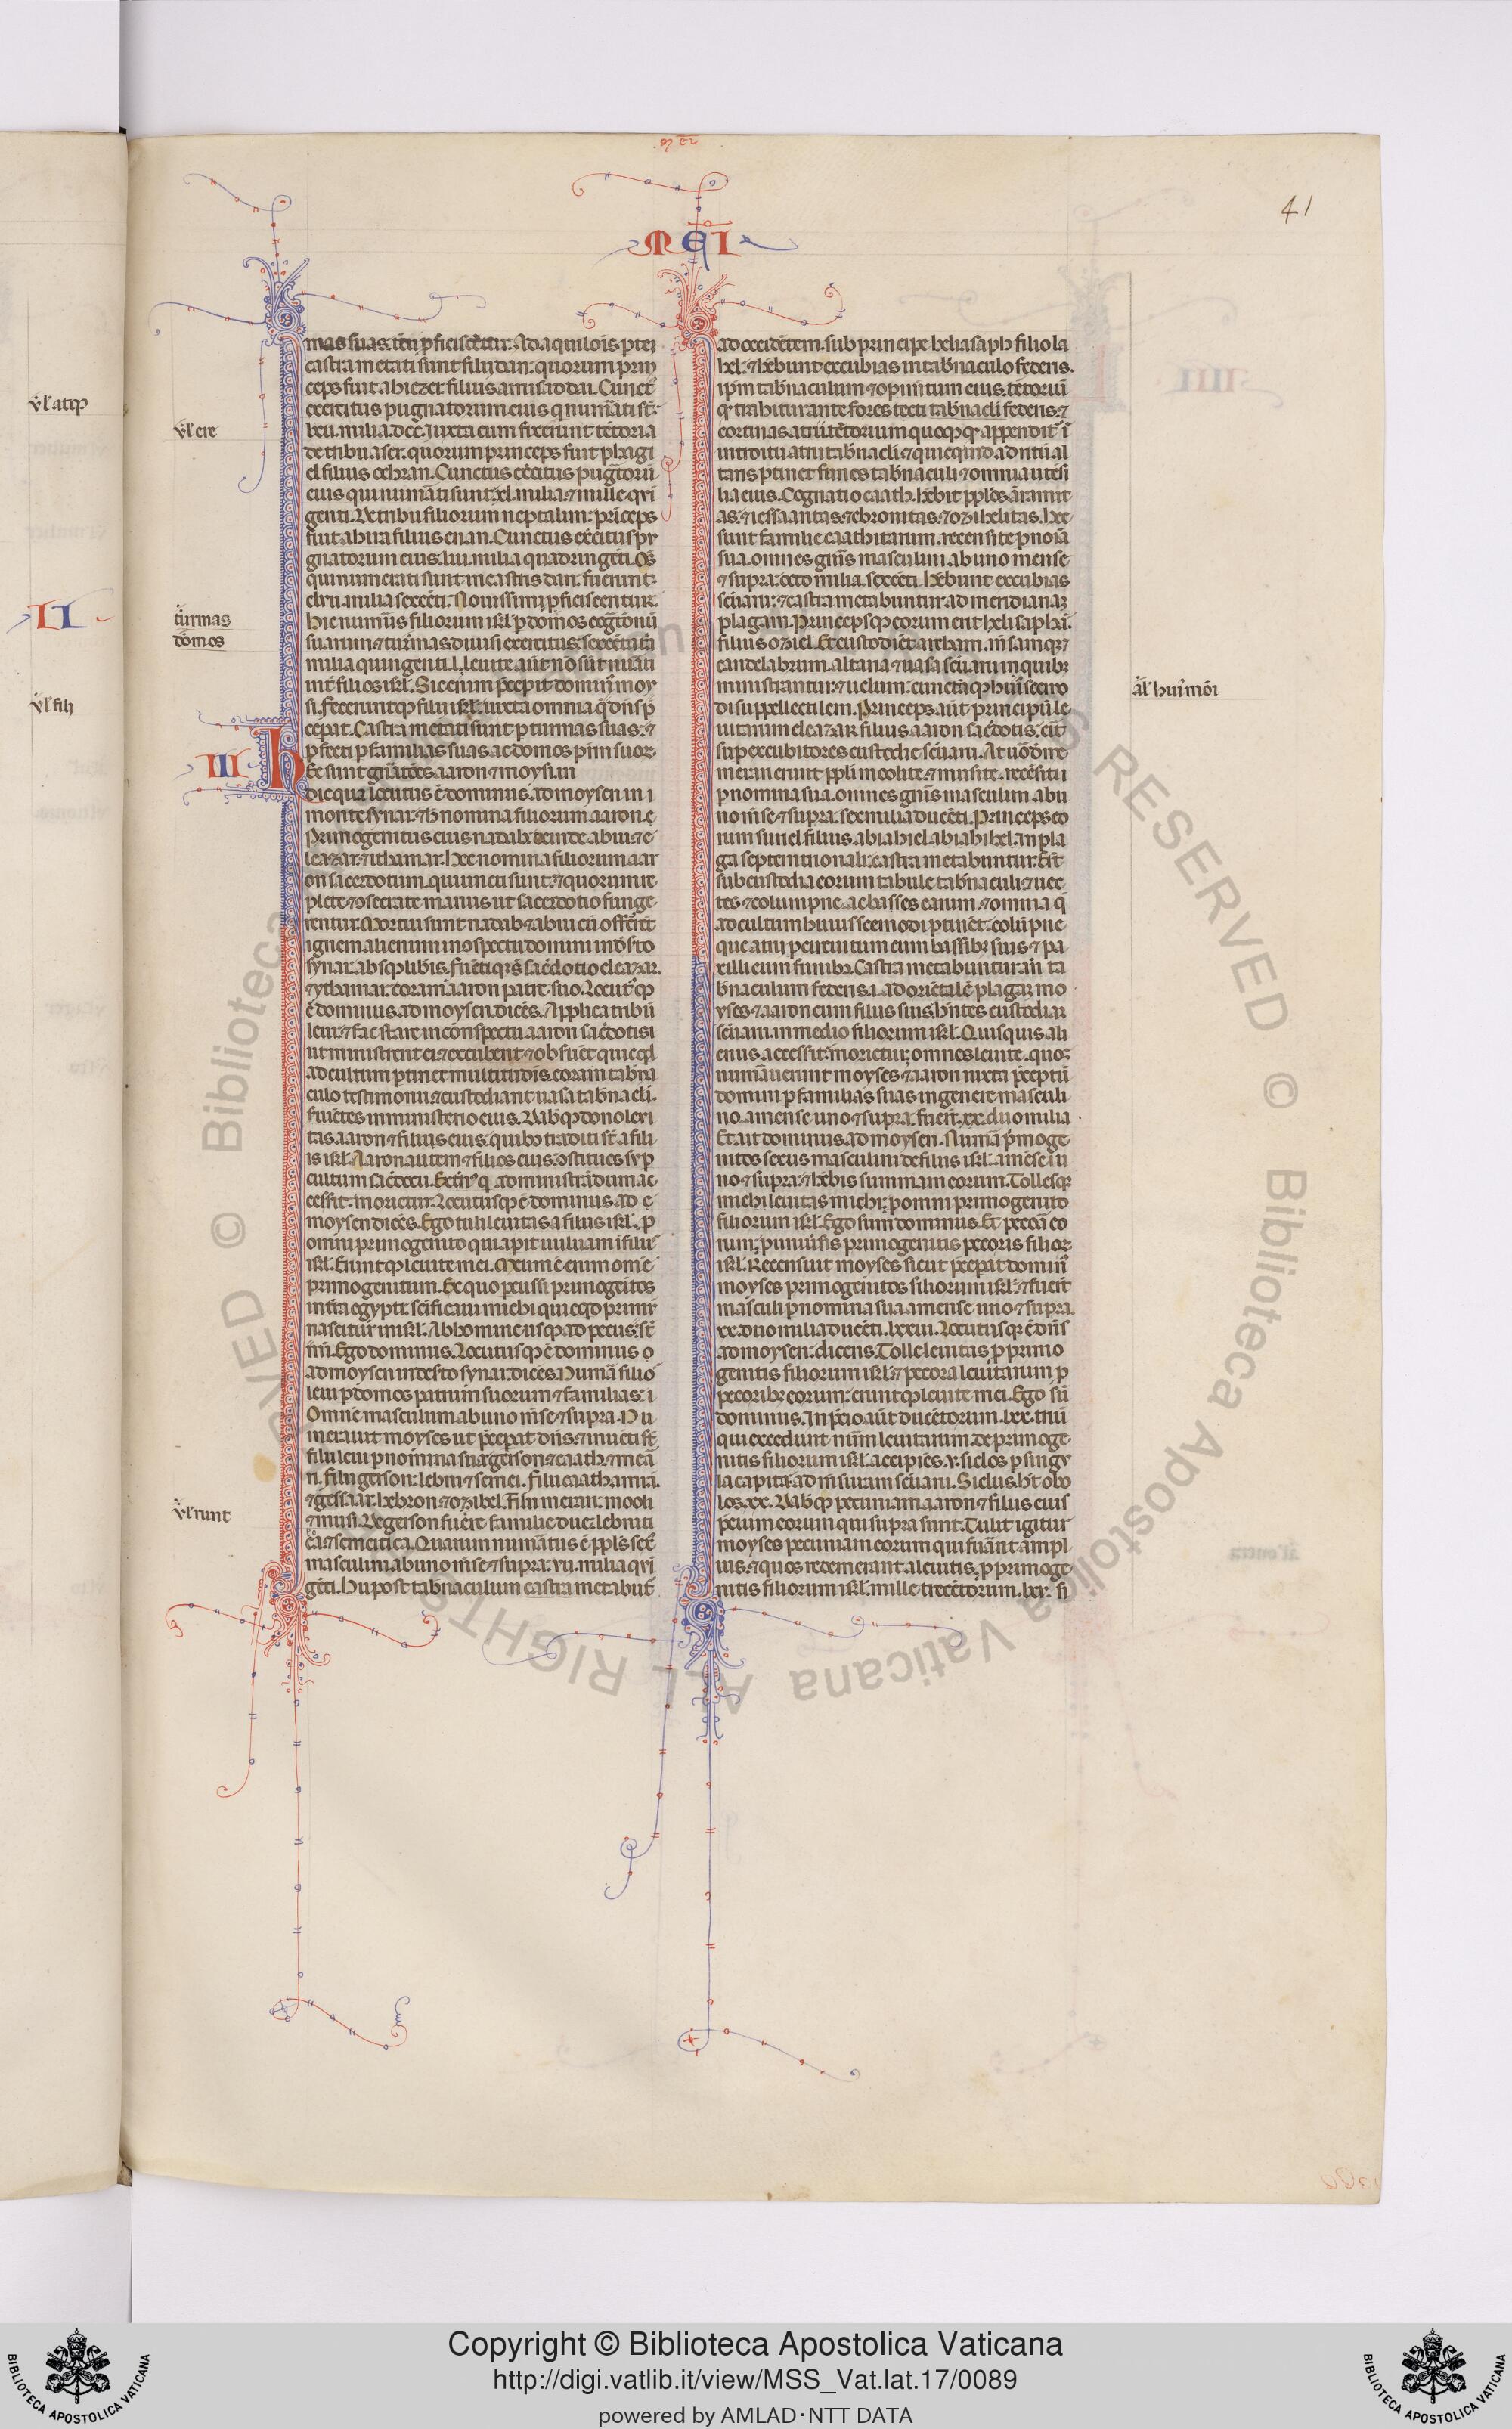 41
MEI
mas suas. tẽtij ꝓficiscẽtur. Ad aquilõis ptem
castra metati sunt filij dan: quorum prin
ceps fuit abiezer filius amisaddai. Cunct᷑
exercitus pugnatorum eius q numãti st̃:
lxii. milia .dcc. Juxta eum fixerunt tẽtoria
de tribu aser. quorum princeps fuit phagi
el filius ochran. Cunctus exẽcitus pugᷓtorũ
eius qui numãti sunt: xl. milia ⁊ mille qⁱn
genti. De tribu filiorum neptalim: prĩceps
fuit ahira filius enan. Cunctus exẽcitus pu
gnatorum eius: liii. milia quadringẽti. Om̃s
qui numerati sunt in castris dan: fuerunt
clvii. milia sexcẽti. ⁊ nouissimi ꝓficiscentur.
Hic num̃us filiorum isrl̃ p domos cogᷓtionũ
suarum ⁊ turmas diuisi exercitus: sexcẽta tᷓa
milia quingenti .l. leuite aũt nõ sũt num̃ati
int̃ filios isrl̃. Sic enim p̃cepit domin᷒ moy
si. feceruntqꝫ filij isrl̃. iuxta omnia q̃ dñs p̃
cepat. Castra metati sunt p turmas suas. ⁊
ꝓfecti p familias suas ac domos pr̃m suor.
Hec sunt gñatões aaron ⁊ moysi. in
die qua locutus ẽ dominus ad moysen in
monte synai. ⁊ h̃ nomina filiorum aaron.
Primogenitus eius nadab. deinde abiu ⁊ e
leazar. ⁊ ithamar. Hec nomina filiorum aar
on sacerdotum. qui uncti sunt. ⁊ quorum re
plete ⁊ ꝯsecrate manus ut sacerdotio funge
rentur. Mortui sunt nadab ⁊ abiu cũ offerẽt
ignem alienum in ꝯspectu domini in dẽsto
synai. absqꝫ libĩs. fũctiqꝫ s̃ sac̃dotio eleazar.
⁊ ythamar. coram aaron patre suo. Locut᷒qꝫ
ẽ dominus ad moysen. dicẽs. Applica tribũ
leui. ⁊ fac stare in conspectu aaron sac̃dotis
ut ministrent ei ⁊ excubent. ⁊ obsuẽt quicqd
ad cultum ptinet multitudĩs. coram tabr̃na
culo testimonij. ⁊ custodiant uasa tabñacli.
seruiẽtes in ministerio eius. Dabisqꝫ dono leui
tas aaron ⁊ filijs eius. quibꝫ traditi st̃ a fili
is isrl̃. Aaron autem ⁊ filios eius ꝯstitues sup
cultum sac̃docij. Extᷓneus q̃ ad ministrãdum ac
cessit: morietur. Locutusqꝫ ẽ dominus ad
moysen dicẽs. Ego tuli leuitas a filijs isrl̃. p
omni primogenito qui apit uuluam ĩ filijs
isrl̃. Eruntqꝫ leuite mei. Meum ẽ enim om̃e
primogenitum. Ex quo peussi primogẽitos
in tᷓra egypti. sc̃ificaui michi quicqd primũ
nascitur in isrl̃. Ab homine usqꝫ ad pecus: st̃
mei. Ego dominus. Locutusqꝫ ẽ dominus
ad moysen in desto synai: dicẽs. Numᷓa filio
leui p domos patrum suorum ⁊ familias:
Omñe masculum ab uno m̃se ⁊ supra. Nu
merauit moyses ut p̃cepat dñs. ⁊ inuẽti st̃
filij leui p nomina sua: gerson ⁊ caath. ⁊ merᷓ
ri. filij gerson: lebni ⁊ semei. Filij caath: amrᷓ.
⁊ gessaar. hebron ⁊ ozihel. Filij merari: mooli
⁊ musi. De gerson fuẽre familie due: lebniti
ca. ⁊ semeitica. Quarum num̃atus ẽ ppls̃ sex᷑
masculini. ab uno m̃se ⁊ supra: vii. milia qⁱn
gẽti. Hij post tabñaculum castra metabũt᷑
ad occidẽtem. sub principe heliasaph filio la
hel. ⁊ hẽbunt excubias in tabñaculo federis.
ip̃m tabñaculum ⁊ opim̃tum eius. tẽtoriũ
qᷓ trahitur ante fores tecti tabñacli federis. ⁊
cortinas atrij. tẽtorium quoqꝫ qᷓ appendit᷑ ĩ
introitu atrij tabñacli. ⁊ quicquid ad ritũ al
taris ptinet. funes tabñaculi ⁊ omnia utẽsi
lia eius. Cognatio caath. hẽbit ppl̃os ãramit
as. ⁊ iessaaritas. ⁊ ebronitas. ⁊ ozihelitas. hee
sunt familie caathitarum. recensite p nom̃ia
sua. omnes gñis masculini. ab uno mense
⁊ supra: octo milia. sexcẽti. Hẽbunt excubias
sc̃uarij. ⁊ castra metabuntur ad meridianaꝫ
plagam. Princepsqꝫ eorum erit helisaphã.
filius oziel. Et custodiẽt archam. m̃samqꝫ. ⁊
candelabrum. altaria ⁊ uasa sc̃uarij in quibꝫ
ministrantur: ⁊ uelum. cunctãqꝫ hui᷒scemo
di suppellectilem. Princeps aũt principũ le
uitarum eleazar filius aaron sac̃dotis. erit
sup excubitores custodie sc̃uarij. At uõ de me
merari erunt ppl̃i moolite ⁊ musite. recẽsiti
p nomina sua. omnes gñis masculini. ab u
no m̃se ⁊ supra: sex milia ducẽti. Princeps eo
rum suriel filius abiahiel. abiahihel. in pla
ga septemtrionali castra metabuntur. Erũt
sub custodia eorum tabule tabñaculi ⁊ uec
tes ⁊ columpne. ac basses earum. ⁊ omnia q̃
ad cultum huiuscemodi ptinẽt. colũpne
que atrij per circuitum cum bassibꝫ suis. ⁊ pa
xilli cum funibꝫ. Castra metabuntur añ ta
bñaculum federis .i. ad oriẽtalẽ plagaꝫ mo
yses ⁊ aaron cum filijs suis. hñtes custodiaꝫ
sc̃uarij. in medio filiorum isrl̃. Quisquis ali
enus accessit: morietur. omnes leuite. quos
numᷓauerunt moyses ⁊ aaron iuxta p̃ceptũ
domini p familias suas in genere masculi
no. a mense uno ⁊ supra. fuer̃t .xx. duo milia.
Et ait dominus ad moysen. Numᷓa p̃moge
nitos sexus masculini de filijs isrl̃. a mẽse u
no ⁊ supra. ⁊ hẽbis summam eorum. Tollesqꝫ
michi leuitas michi. p omni primogenito
filiorum isrl̃. Ego sum dominus. Et peccᷓa eo
rum: p uniũsis primogenitis pecoris filiorꝫ
isrl̃. Recensuit moyses sicut p̃cepat domin᷒
moyses primogenitos filiorum isrl̃. ⁊ fuer̃t
masculi p nomina sua. a mense uno ⁊ supra.
xx. duo milia ducẽti .lxxiii. Locutusqꝫ ẽ dñs
ad moysen: dicens. Tolle leuitas p primo
genitis filiorum isrl̃. ⁊ pecora leuitarum p
pecoribꝫ eorum: eruntqꝫ leuite mei. Ego sũ
dominus. In p̃cio aũt ducẽtorum .lxx. triũ
qui excedunt num̃ leuitarum. de primoge
nitis filiorum isrl̃. accipies .v. siclos p singu
la capita. ad m̃suram sc̃uarij. Siclus ht̃ obo
los .xx. Dabisqꝫ pecuniam aaron ⁊ filijs eius
p̃cium eorum qui supra sunt. Tulit igitur
moyses pecuniam eorum qui fuᷓant ampl
ius. ⁊ quos redemerant a leuitis. p primoge
nitis filiorum isrl̃. mille trecẽtorum .lxv. si
III
vl̃ ere
turmas
domos
vl̃ runt
al̃ hui᷒mõi
vl̃ atqꝫ
II
vl̃ filij
Copyright © Biblioteca Apostolica Vaticana
http://digi.vatlib.it/view/MSS_Vat.lat.17/0089
powered by AMLAD·NTT DATA
BIBLIOTECA APOSTOLICA VATICANA
BIBLIOTECA APOSTOLICA VATICANA
© Biblioteca Apostolica Vaticana ALL RIGHTS RESERVED